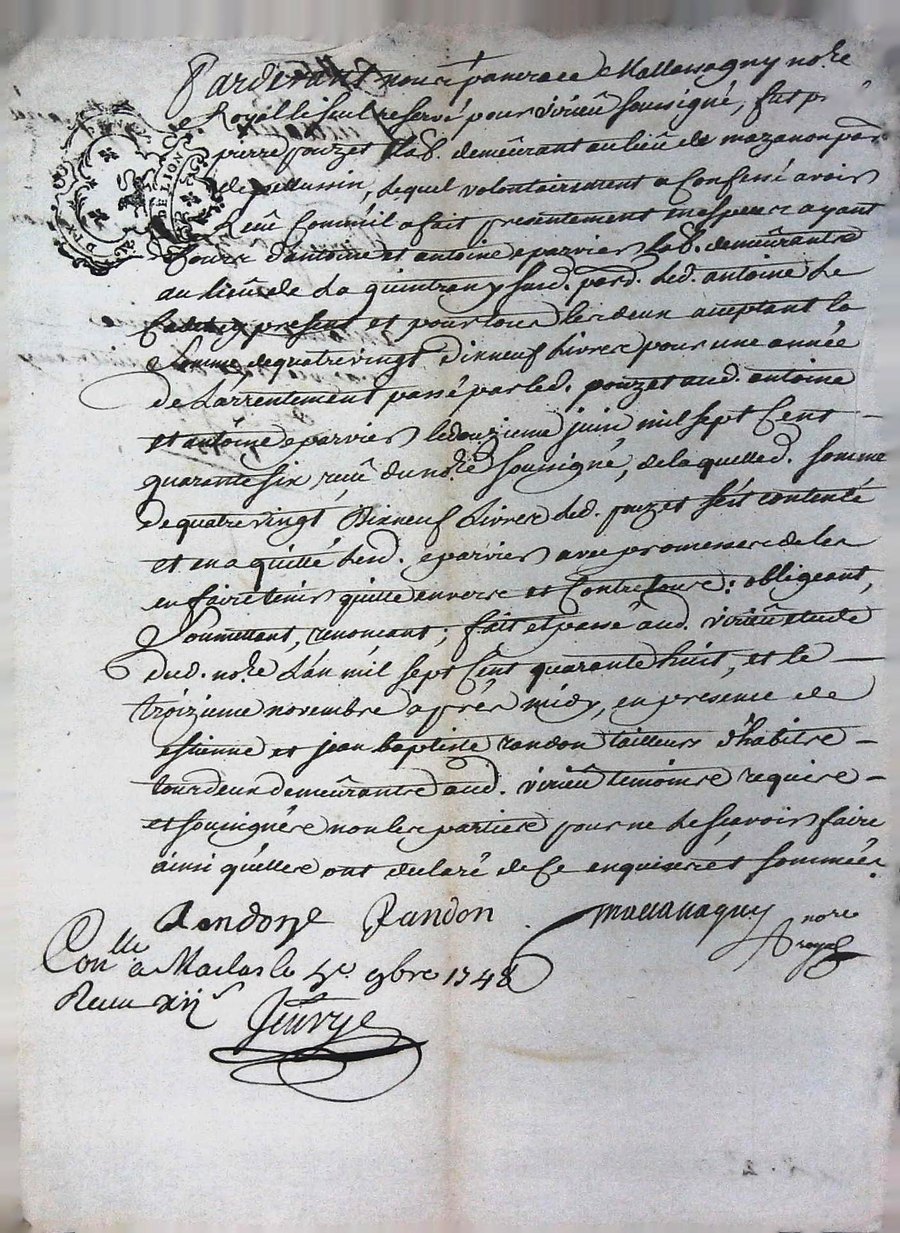 Pardevant nous pancrace Mallassagny no.re
Royal le seul reservé pour virieu soussigné, fut p.
pierre pouzet lab. demeurant au lieu de mazanon par.
de pellussin, lequel volontairement a Confessé avoir
Reçu Comme il a fait presentement en especes ayant
Cours d'antoine et antoine eparvier lab. demeurants
au lieu de La quintrany sud. par. led. antoine Le
present et pour tous les deux aceptant la
Somme de quatre vingt Dixneuf Livres pour une année
de L'arrentement passé par led. pouzet aud. antoine
et antoine eparvier le douzieme juin mil sept Cent
quarante six reçu du no.re soussigné, de laquelle d. somme
de quatre vingt Dixneuf Livres led. pouzet s'est contenté
et en a quitté lesd. eparvier avec promesse de les
en faire tenir quitte envers et Contre tous; obligeant,
Soumettant, renoncant; fait et passé aud. virieu etude
dud. no.re L'an mil sept Cent quarante huit, et le
troizieme novembre après midy, en presence de
estienne et jean baptiste randon tailleurs d'habits
tous deux demeurants aud. virieu temoins requis
et soussignés non les parties pour ne le sçavoir faire
ainsi qu'elles ont declaré de ce enquises et sommées
Randon Randon Mallassagny no.re
royal
Con.lle a Maclas le 4e 9bre 1748
Recu xij s
DIX DEN
DE LION